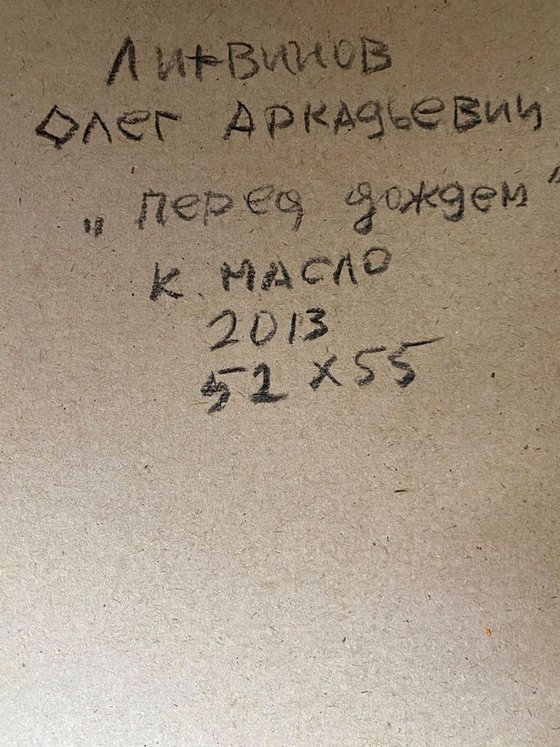 Литвинов
Олег Аркадьевич
„перед дождем"
к. масло
2013
52 х 55